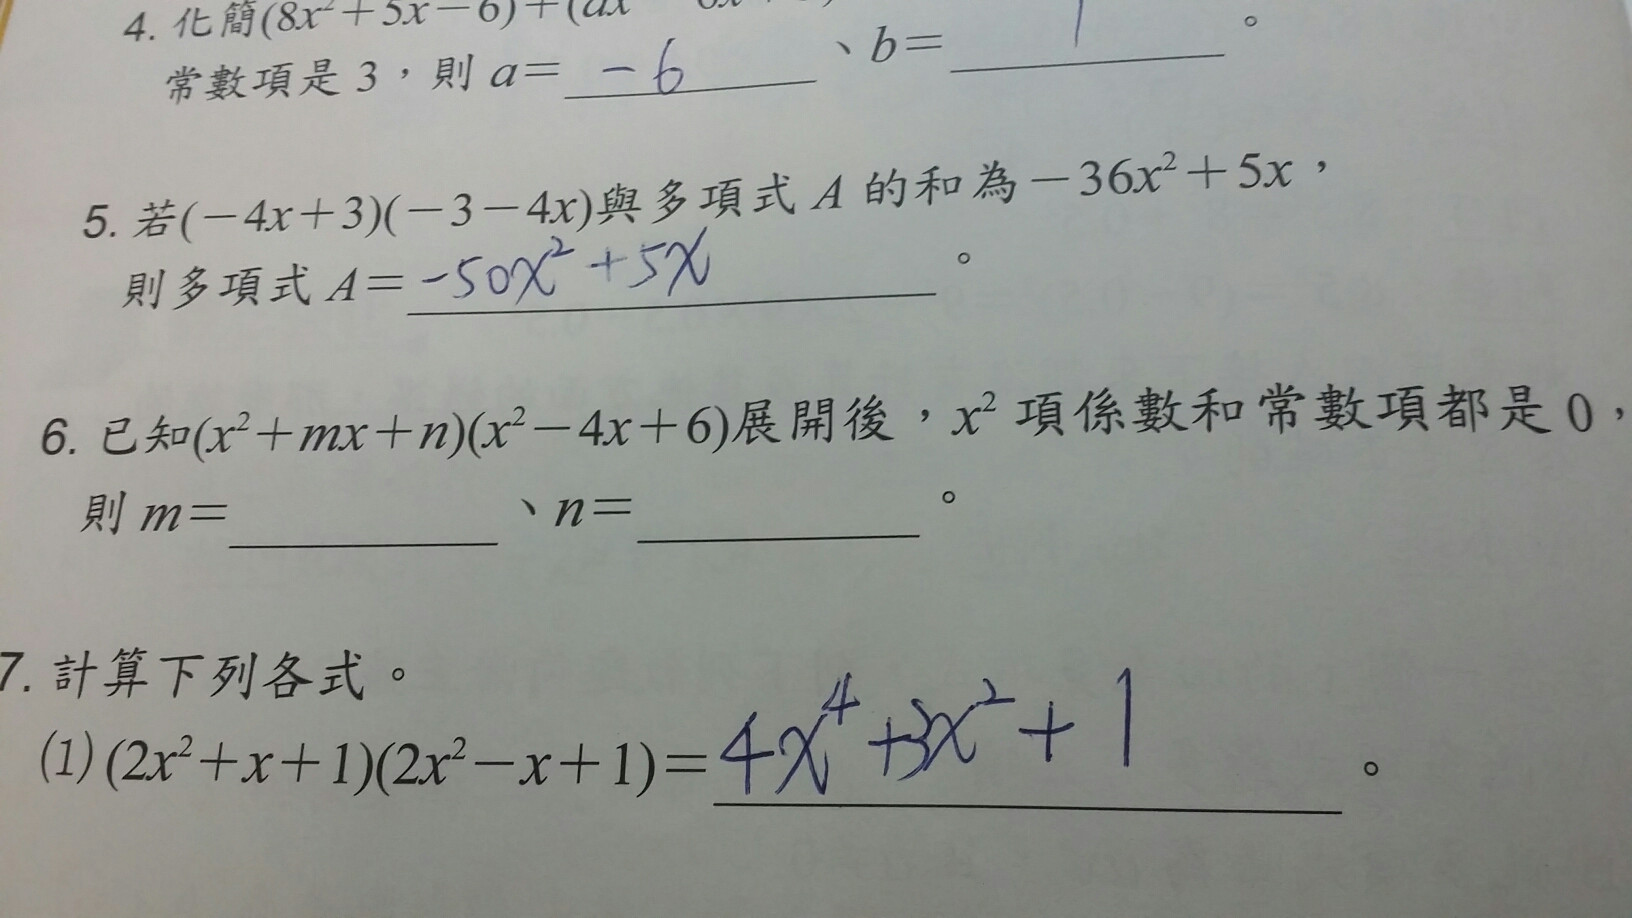 4. 化簡(8x²+5x-6)+(ax
常數項是3,則a= -6 、b= 1 。
5. 若(-4x+3)(-3-4x)與多項式A的和為-36x²+5x,
則多項式A= -50x²+5x 。
6. 已知(x²+mx+n)(x²-4x+6)展開後,x²項係數和常數項都是0,
則m= 、n= 。
7. 計算下列各式。
(1) (2x²+x+1)(2x²-x+1)= 4x⁴+3x²+1 。